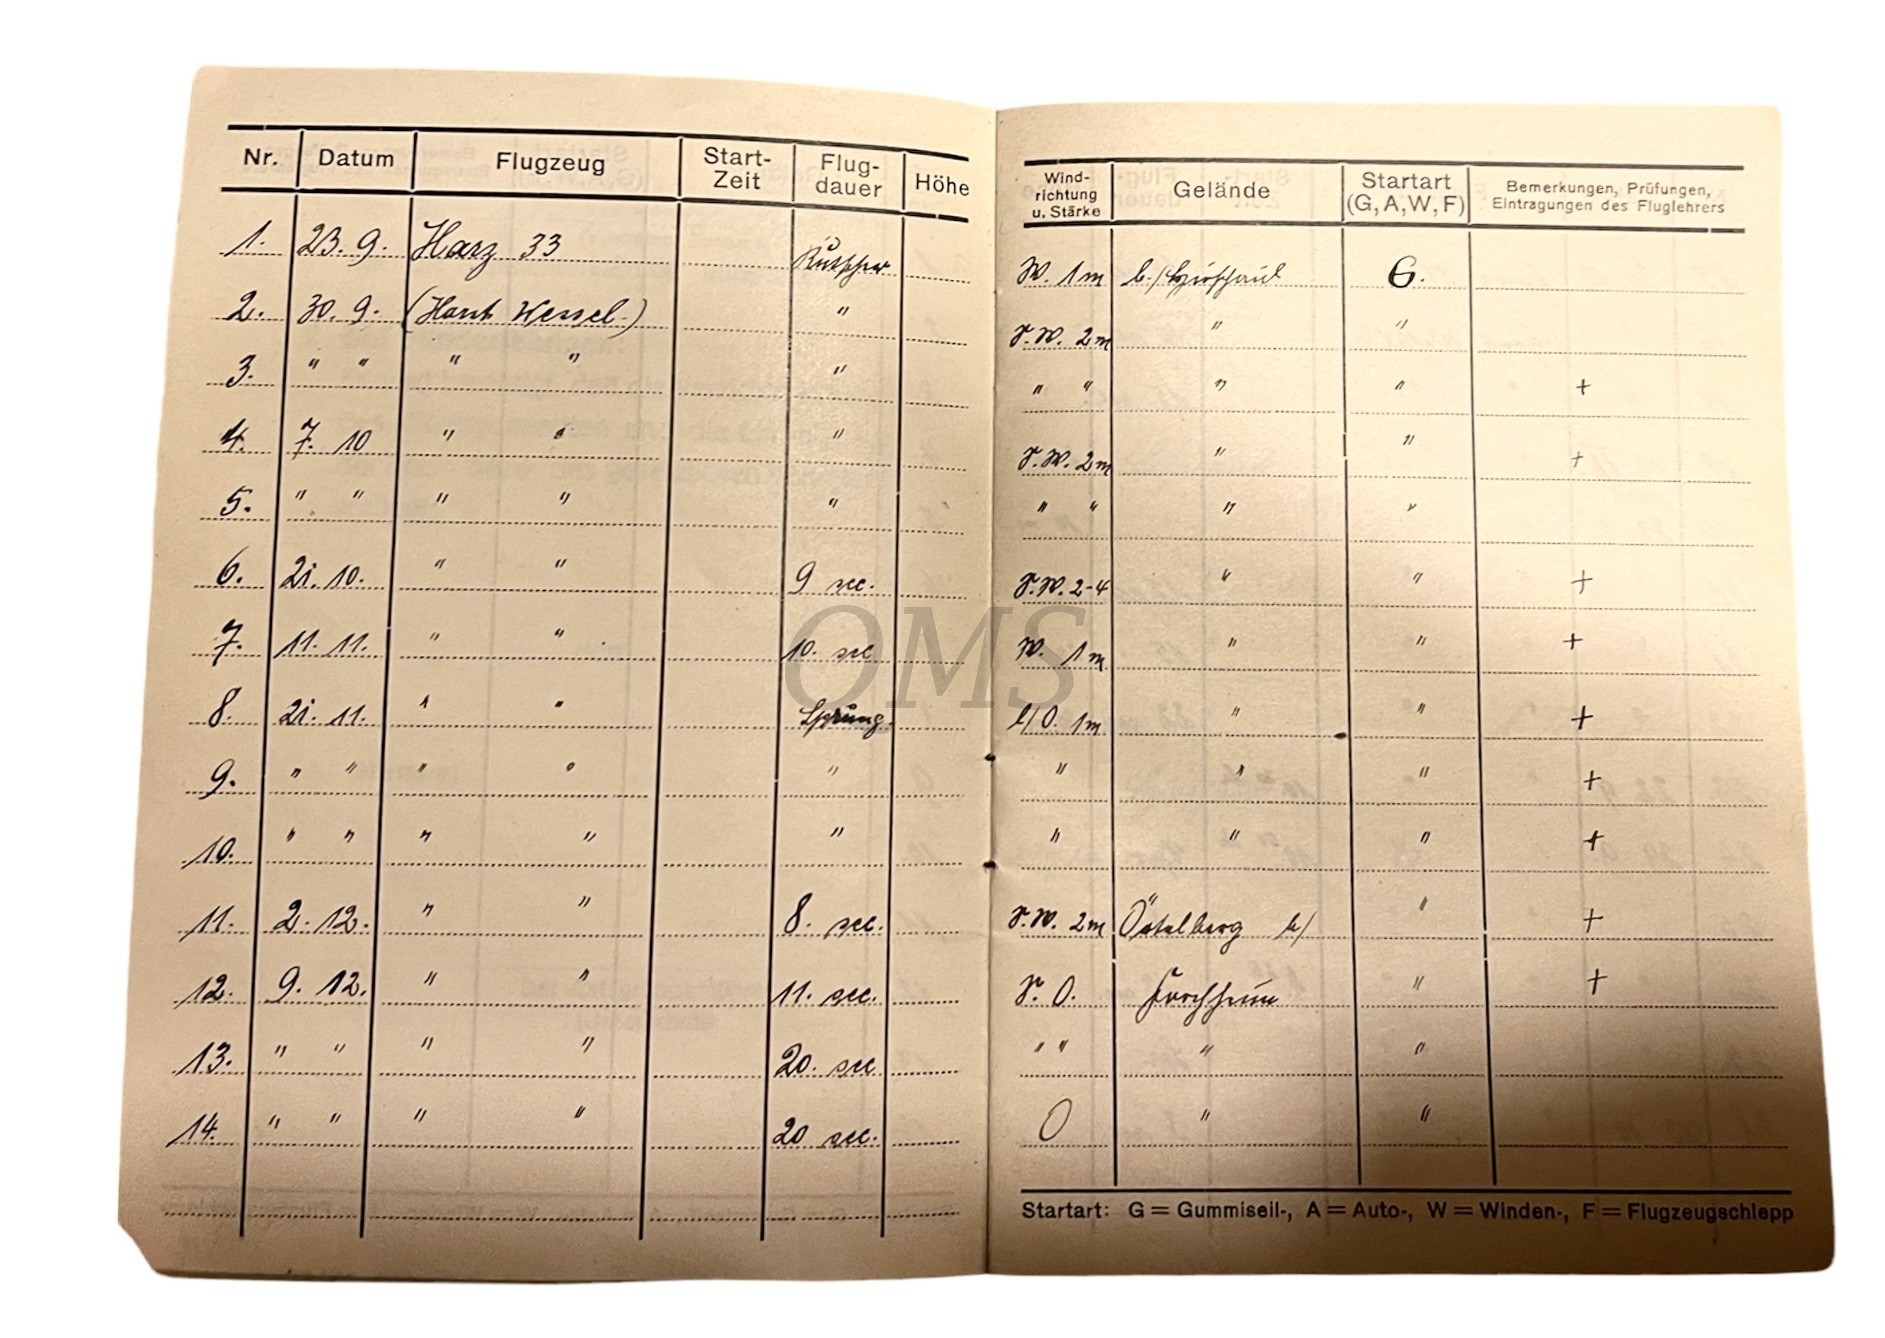 Nr. Datum Flugzeug Start-Zeit Flug-dauer Höhe Wind-richtung u. Stärke Gelände Startart (G, A, W, F) Bemerkungen, Prüfungen, Eintragungen des Fluglehrers
1. 23. 9. Harz 33 Rutscher W. 1 m b./Hirschaid G.
2. 30. 9. (Horst Wessel.) " S.W. 2 m " "
3. " " " " " " " " " +
4. 7. 10 " " " S.W. 2 m " " +
5. " " " " " " " " "
6. 21. 10. " " 9 sec. S.W. 2-4 " " +
7. 11. 11. " " 10. sec W. 1 m " " +
8. 21. 11. " " Sprung. 1 m " " +
9. " " " " " " " " +
10. " " " " " " " " +
11. 2. 12. " " 8. sec. S.W. 2 m b/ " +
12. 9. 12. " " 11. sec. S. O. Forchheim " +
13. " " " " 20. sec " " " "
14. " " " " 20 sec. O " "
Startart: G = Gummiseil-, A = Auto-, W = Winden-, F = Flugzeugschlepp
OMS